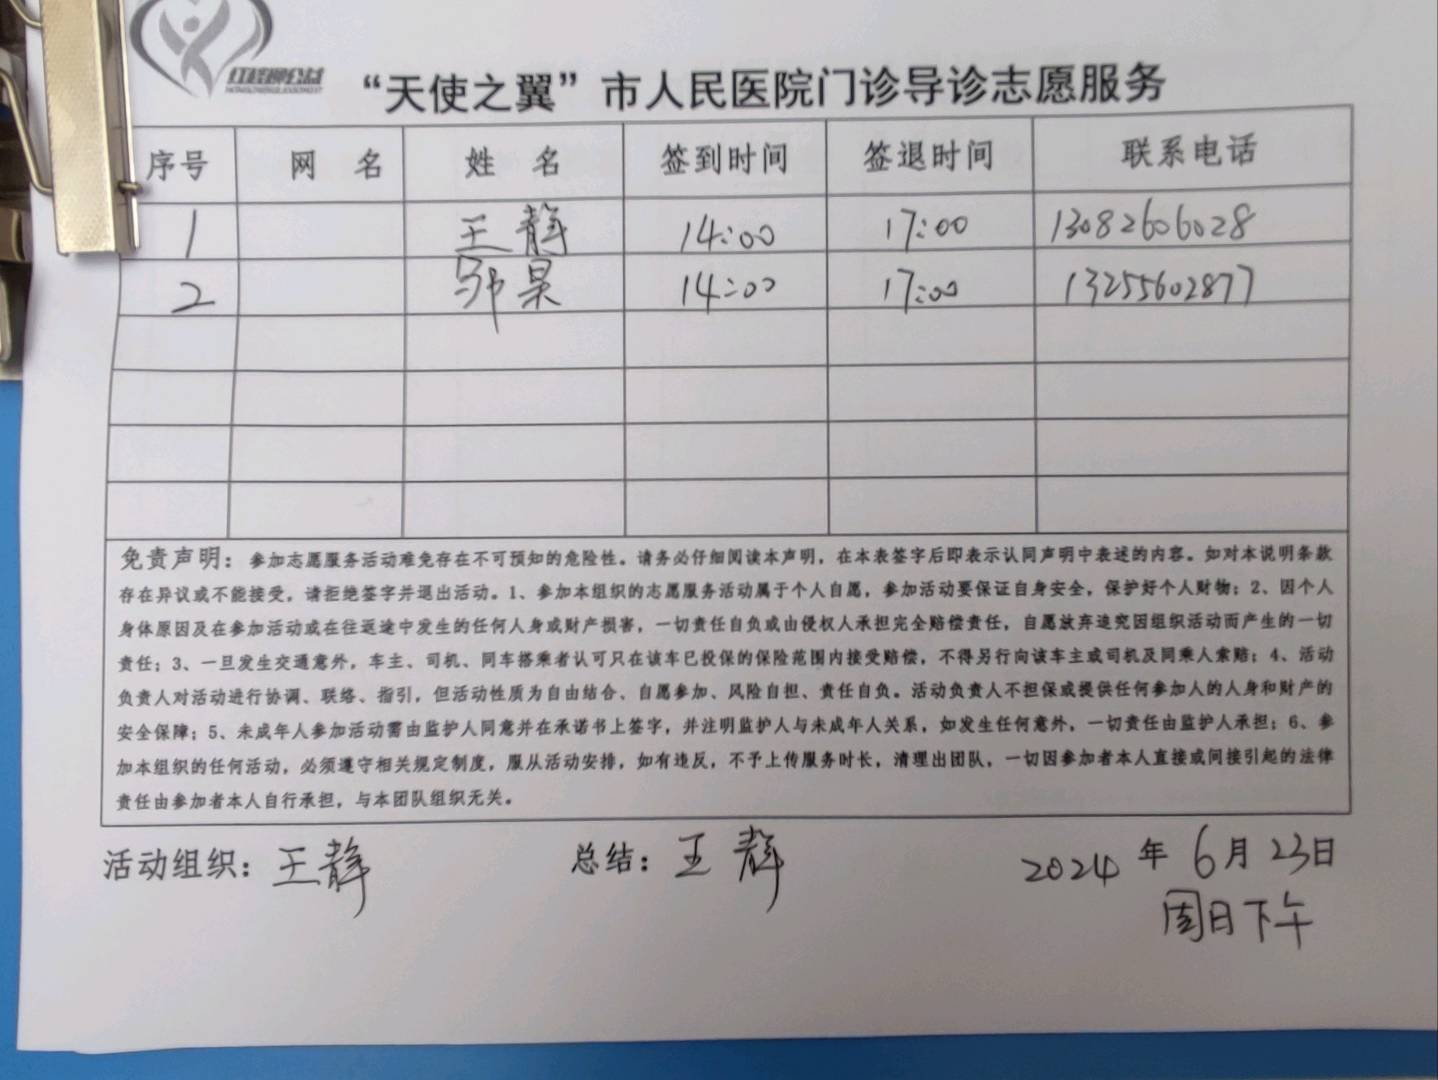 红蜂聊公益
“天使之翼”市人民医院门诊导诊志愿服务
序号 网 名 姓 名 签到时间 签退时间 联系电话
1 王静 14:00 17:00 13082606028
2 邹昊 14:00 17:00 13255602877
免责声明：参加志愿服务活动难免存在不可预知的危险性。请务必仔细阅读本声明，在本表签字后即表示认同声明中表述的内容。如对本说明条款
存在异议或不能接受，请拒绝签字并退出活动。1、参加本组织的志愿服务活动属于个人自愿，参加活动要保证自身安全，保护好个人财物；2、因个人
身体原因及在参加活动或在往返途中发生的任何人身或财产损害，一切责任自负或由侵权人承担完全赔偿责任，自愿放弃追究因组织活动而产生的一切
责任；3、一旦发生交通意外，车主、司机、同车搭乘者认可只在该车已投保的保险范围内接受赔偿，不得另行向该车主或司机及同乘人索赔；4、活动
负责人对活动进行协调、联络、指引，但活动性质为自由结合、自愿参加、风险自担、责任自负。活动负责人不担保或提供任何参加人的人身和财产的
安全保障；5、未成年人参加活动需由监护人同意并在承诺书上签字，并注明监护人与未成年人关系，如发生任何意外，一切责任由监护人承担；6、参
加本组织的任何活动，必须遵守相关规定制度，服从活动安排，如有违反，不予上传服务时长，清理出团队，一切因参加者本人直接或间接引起的法律
责任由参加者本人自行承担，与本团队组织无关。
活动组织：王静 总结：王静 2024年6月23日
周日下午